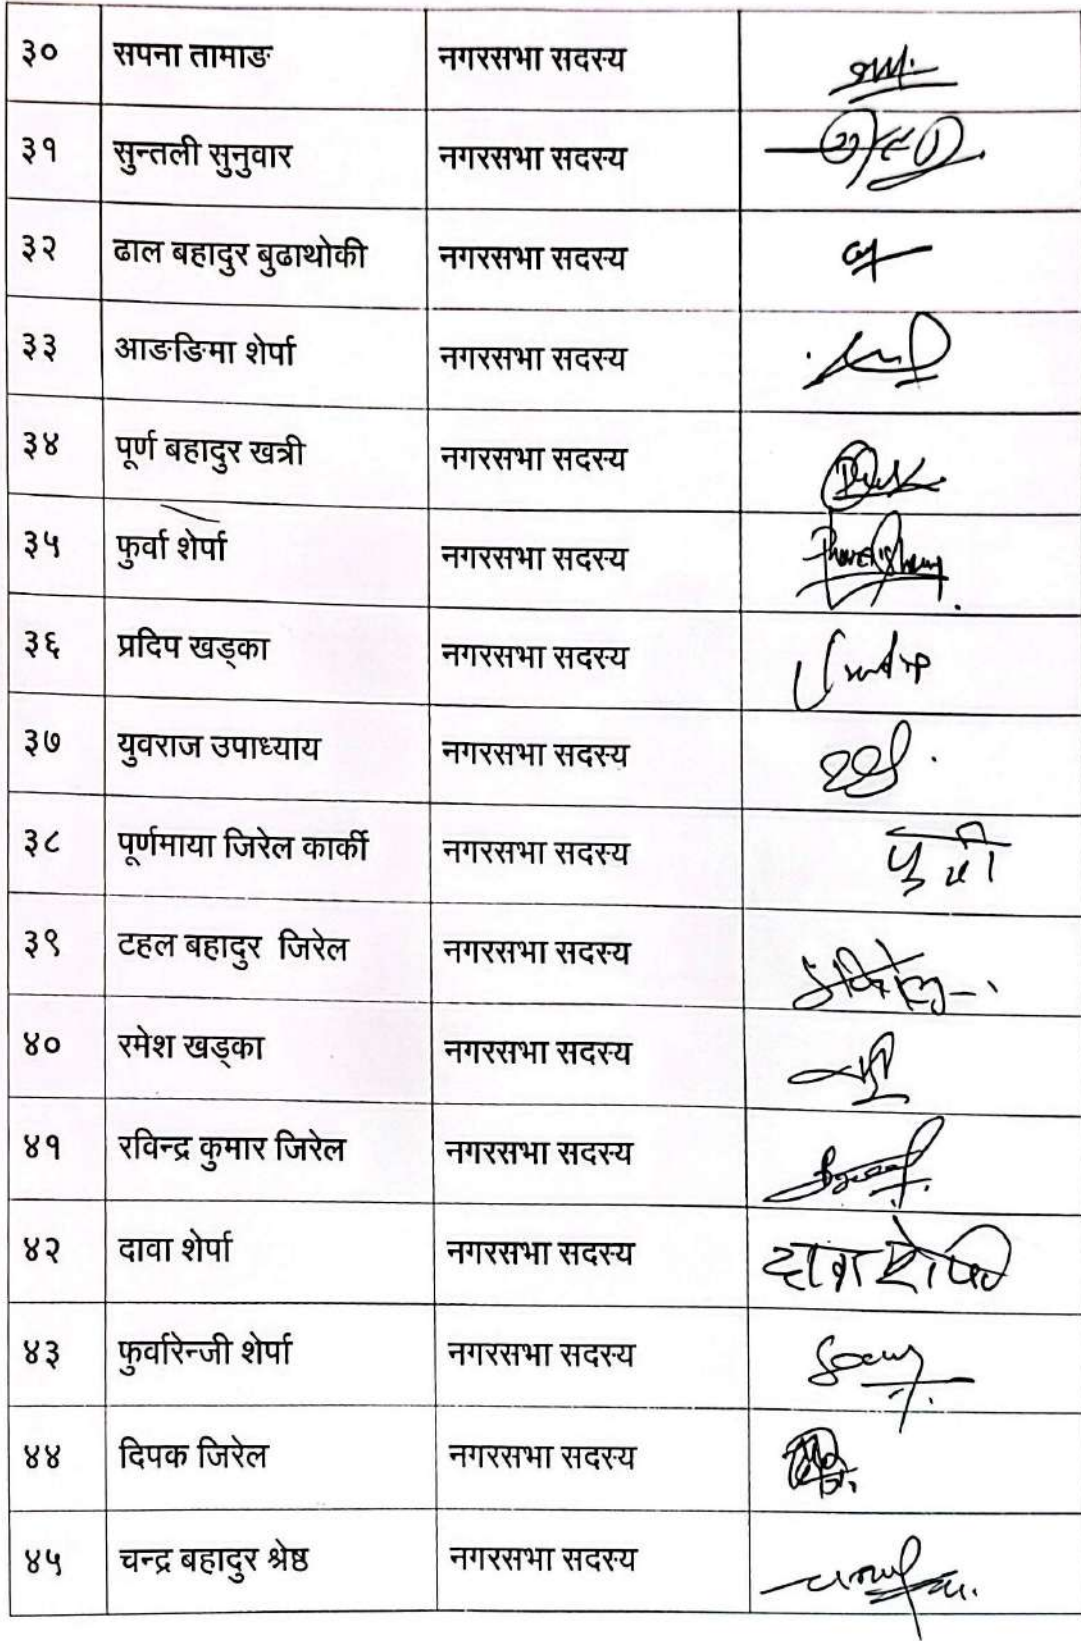 ३० सपना तामाङ नगरसभा सदस्य
३१ सुन्तली सुनुवार नगरसभा सदस्य
३२ ढाल बहादुर बुढाथोकी नगरसभा सदस्य
३३ आङङिमा शेर्पा नगरसभा सदस्य
३४ पूर्ण बहादुर खत्री नगरसभा सदस्य
३५ फुर्वा शेर्पा नगरसभा सदस्य
३६ प्रदिप खड्का नगरसभा सदस्य
३७ युवराज उपाध्याय नगरसभा सदस्य
३८ पूर्णमाया जिरेल कार्की नगरसभा सदस्य
३९ टहल बहादुर जिरेल नगरसभा सदस्य
४० रमेश खड्का नगरसभा सदस्य
४१ रविन्द्र कुमार जिरेल नगरसभा सदस्य
४२ दावा शेर्पा नगरसभा सदस्य दावा शेर्पा
४३ फुर्वारेन्जी शेर्पा नगरसभा सदस्य
४४ दिपक जिरेल नगरसभा सदस्य
४५ चन्द्र बहादुर श्रेष्ठ नगरसभा सदस्य